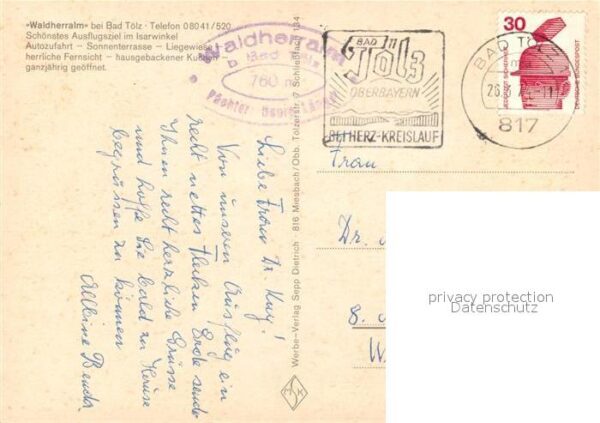 «Waldherralm» bei Bad Tölz · Telefon 08041/520
Schönstes Ausflugsziel im Isarwinkel
Autozufahrt — Sonnenterrasse — Liegewiese
herrliche Fernsicht — hausgebackener Kuchen
ganzjährig geöffnet.
Waldherralm
Bad Tölz
760 m
Pächter
BAD TÖLZ
OBERBAYERN
BEI HERZ-KREISLAUF
BAD TÖLZ
817
30
JEDERZEIT SICHERHEIT
DEUTSCHE BUNDESPOST
Liebe Frau Dr.
Von unserem Ausflug ein
recht nettes Flecken Erde sende
Ihnen recht herzliche Grüsse
und hoffe Sie bald zu Hause
begrüssen zu können
Werbe-Verlag Sepp Dietrich · 816 Miesbach/Obb. Tölzerstr. 7 Schliersbach
Frau
Dr.
8.
W
privacy protection
Datenschutz